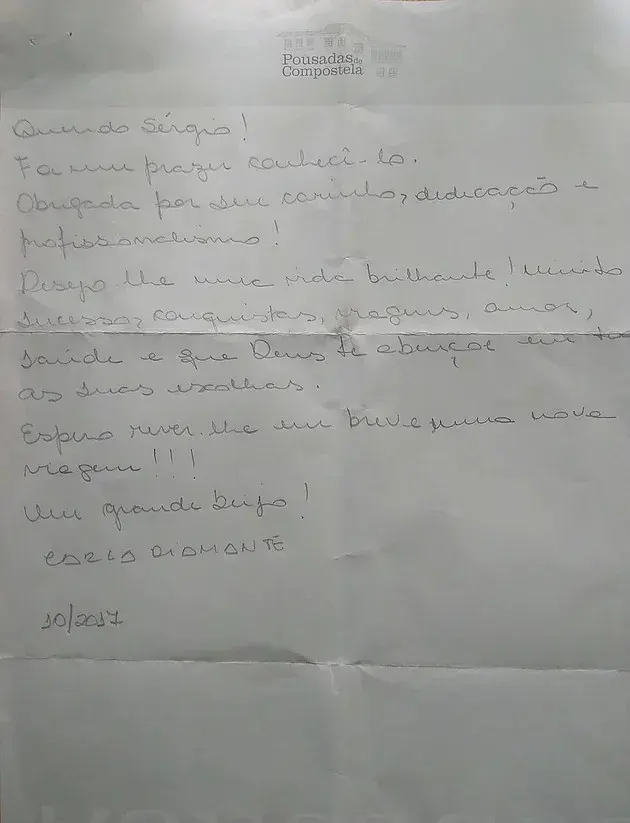 Pousadas de
Compostela
Querido Sérgio!
Foi um prazer conhecê-lo.
Obrigada por seu carinho, dedicação e
profissionalismo!
Desejo-lhe uma vida brilhante! Muito
sucesso, conquistas, viagens, amor,
saúde e que Deus te abençoe em to
as suas escolhas.
Espero rever-lhe em breve numa nova
viagem!!!
Um grande beijo!
CARLA DIAMANTE
10/2017